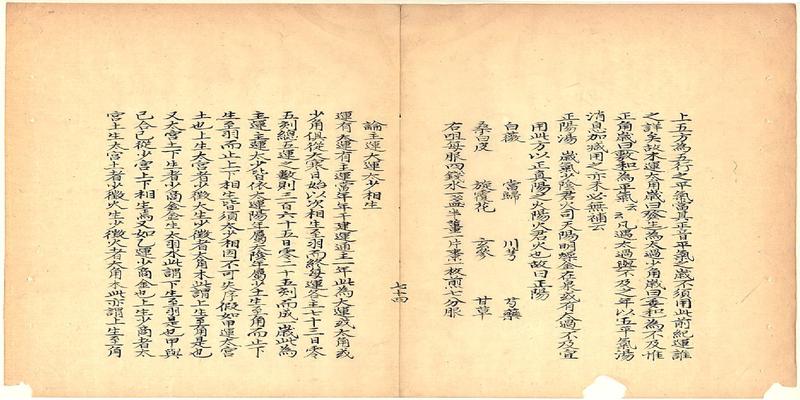 上五方為五行之平氣當其正音平氣之歲不須用此前紀運誰
之詳矣故木運太角歲曰發生為太過少角歲曰委和為不及惟
正角歲曰敷和為平氣云云凡遇太過與不及之年以五平氣湯
消息加減用之亦未必無補云
正陽湯 歲氣少陰君火司天陽明燥金在泉或有太過不及宜
用此方以正真陽之火陽火君火也故曰正陽
白薇 當歸 川芎 芍藥
桑白皮 旋覆花 玄參 甘草
右㕮咀每服四錢水一盞半薑一片棗一枚煎七分服
七十四
論主運大運太少相生
運有大運有主運當年年干建運通主一年此為大運或太角或
少角俱從大寒日始以次相生至羽而終每運各主七十三日零
五刻總五運之數則三百六十五日零二十五刻而成一歲此為
主運主運太少皆依大運陽年屬太陰年屬少主生至角而止下
生至羽而止上下相生皆須太少相因不可失序假如甲運太宮
土也上生太宮者少徵火生少徵者太角木此謂上生至角是也
又太宮土下生者少商金金生太羽水此謂下生至羽是也甲與
己合已從少宮上下相生焉又如乙運少商金也上生少商者太
宮土生太宮土者少徵火生少徵火者太角木此亦謂上生至角